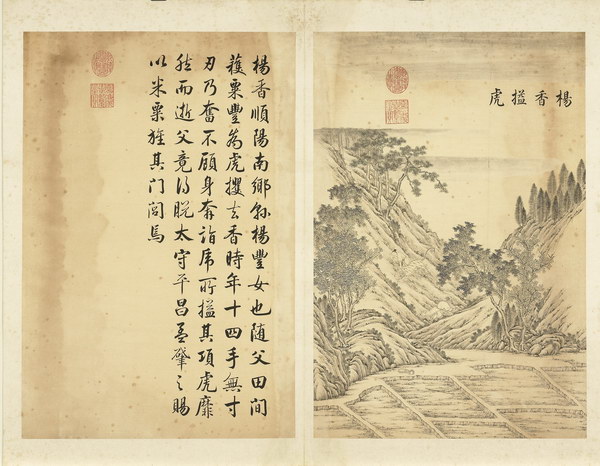 楊香搤虎
楊香順陽南鄉縣楊豐女也随父田間
穫粟豐為虎攫去香時年十四手無寸
刃乃奮不顧身奔詣虎所搤其項虎靡
然而逝父竟得脫太守平昌孟肇之賜
以米粟旌其門閭焉